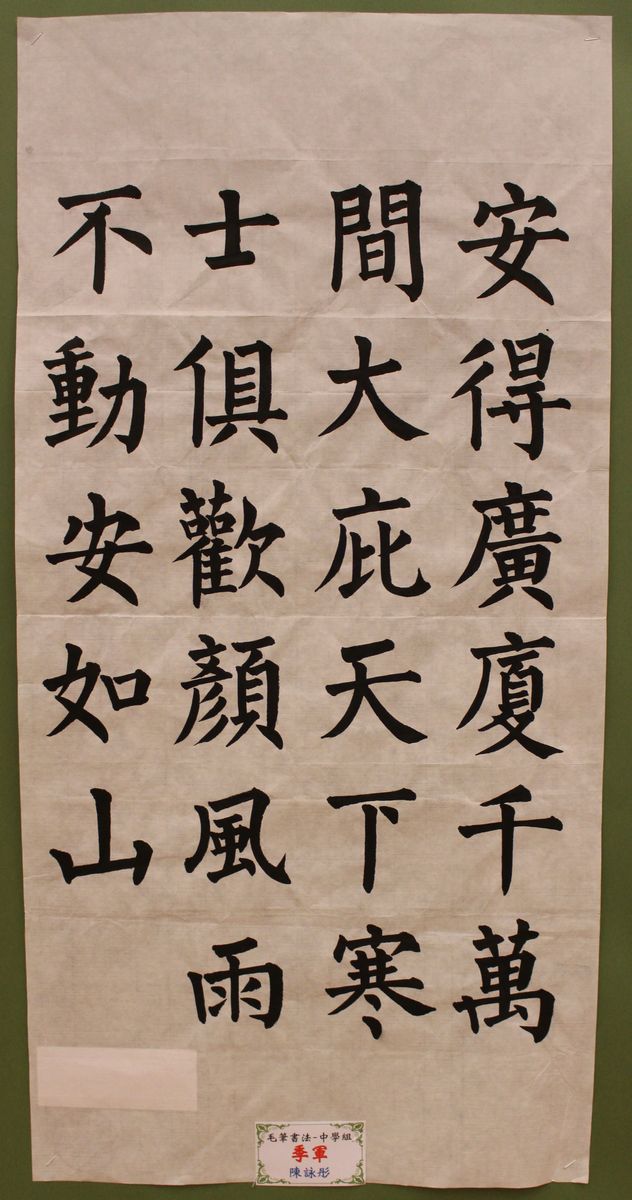 安得廣廈千萬
間大庇天下寒
士俱歡顏風雨
不動安如山
毛筆書法-中學組
季軍
陳詠彤